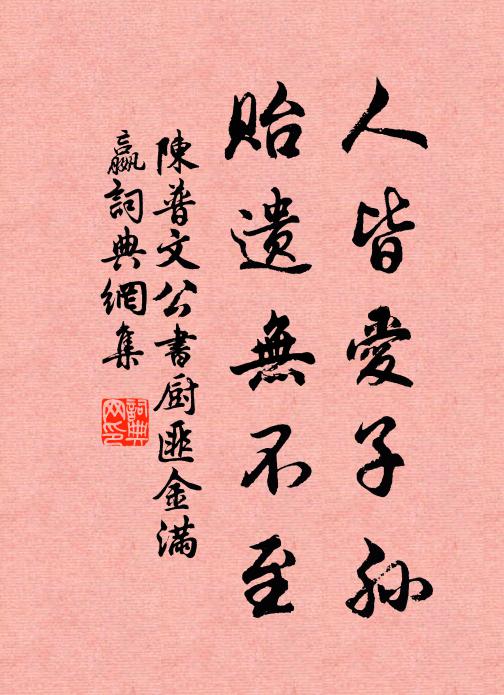 人皆愛子孫
貽遺無不至
陳普文公書厨匪金滿
贏詞典網集
詞典网印